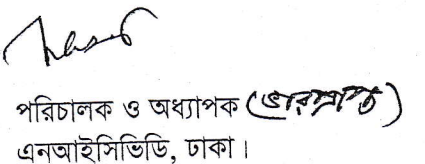 পরিচালক ও অধ্যাপক (ভারপ্রাপ্ত)
এনআইসিভিডি, ঢাকা।